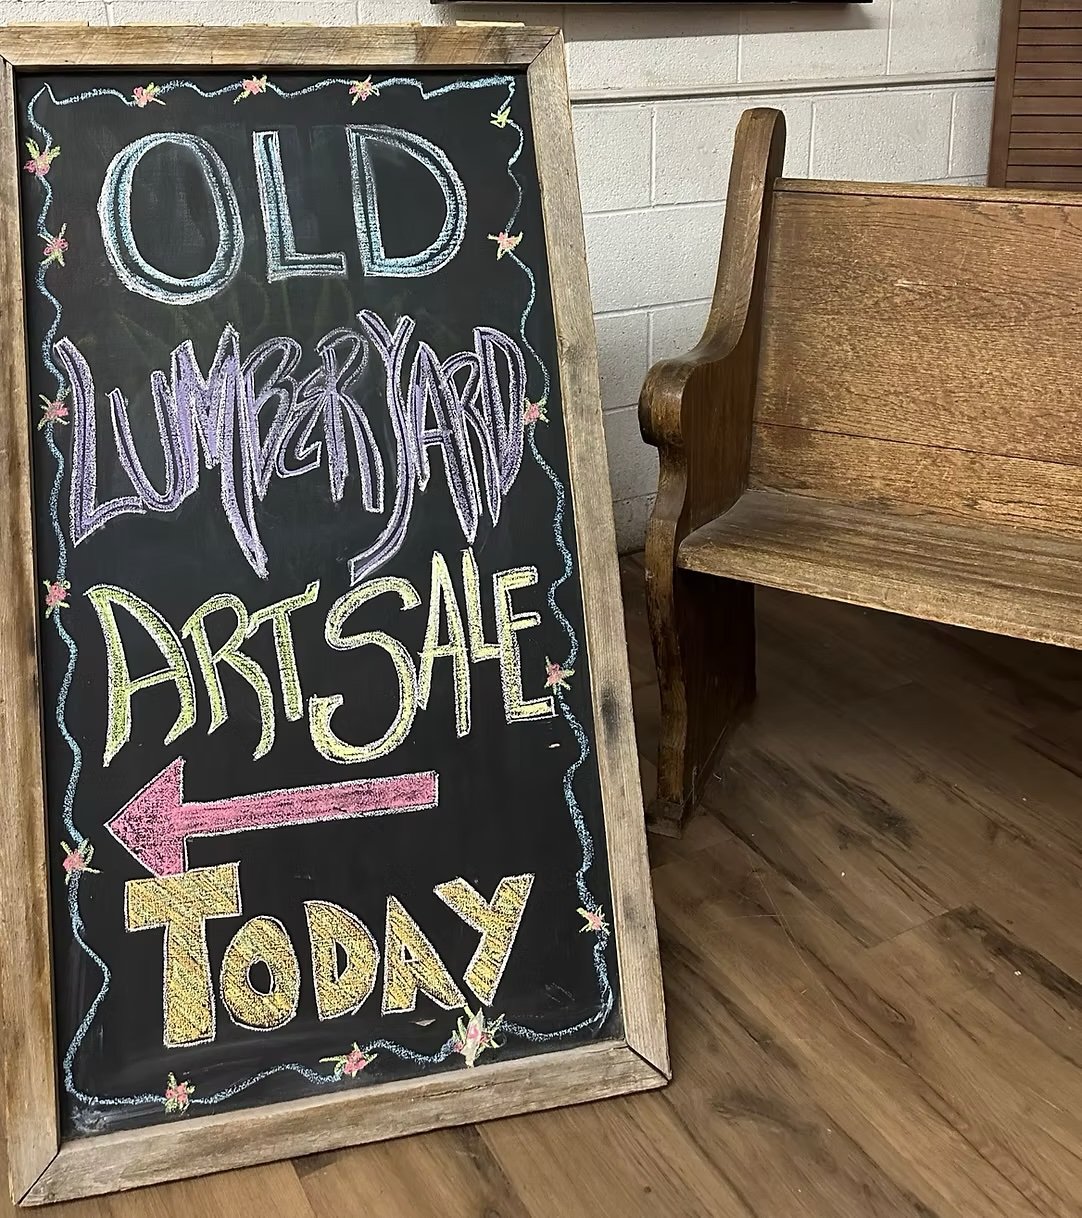 OLD
LUMBERYARD
ART SALE
TODAY